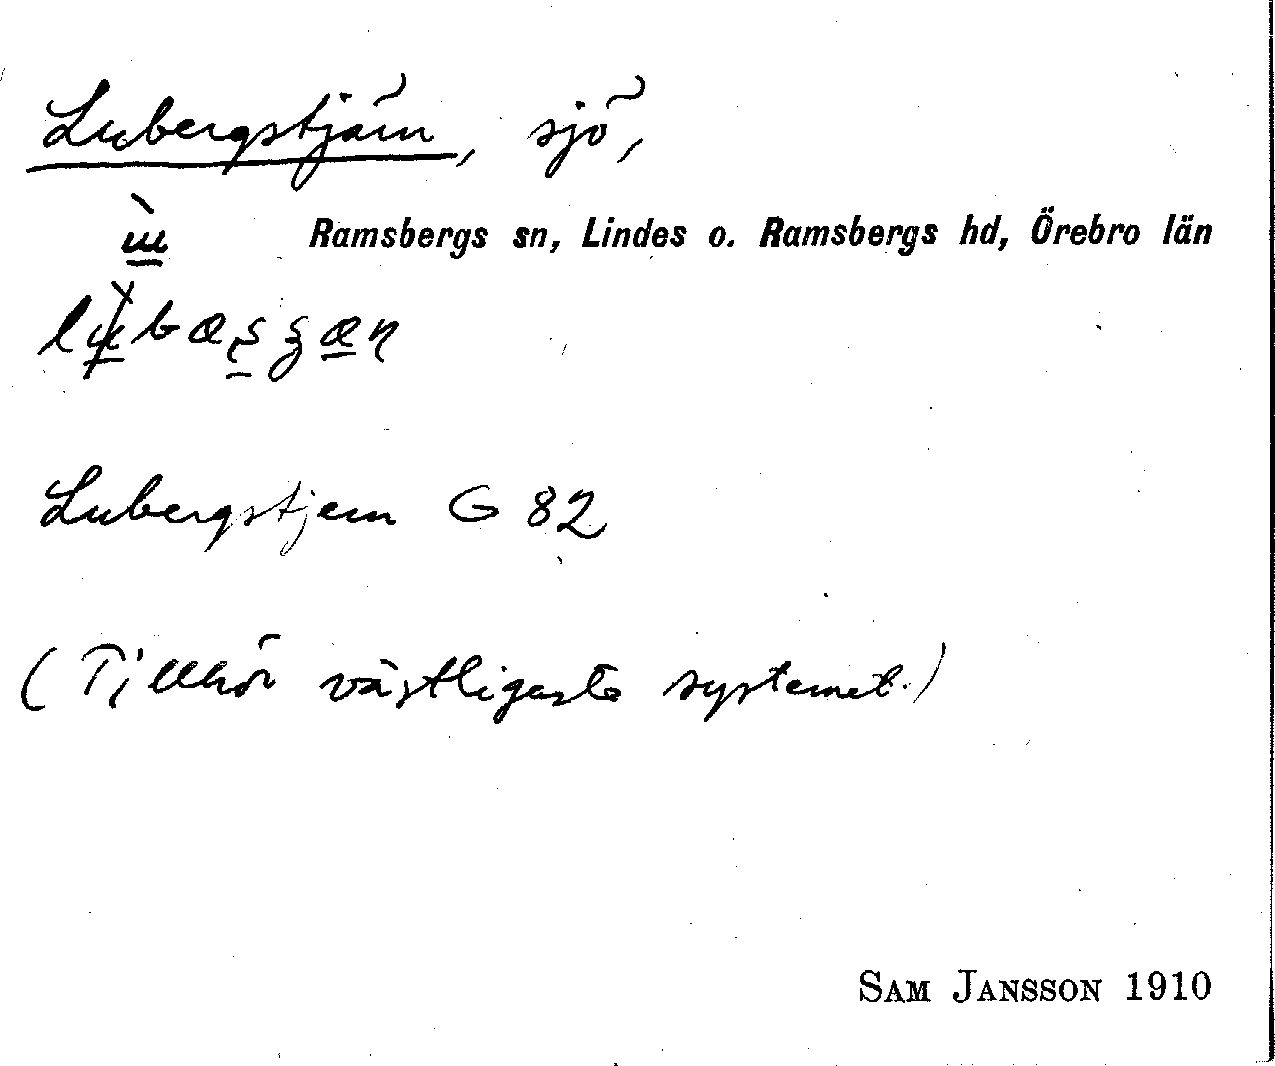 Lubergstjärn, sjö,
Ramsbergs sn, Lindes o. Ramsbergs hd, Örebro län
Lubergstjern G 82
(Tillhör västligaste systemet.)
SAM JANSSON 1910